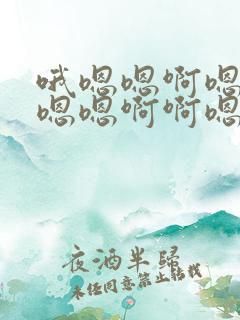 哦嗯嗯啊嗯
嗯嗯啊啊嗯
夜酒半归
未经同意禁止转载